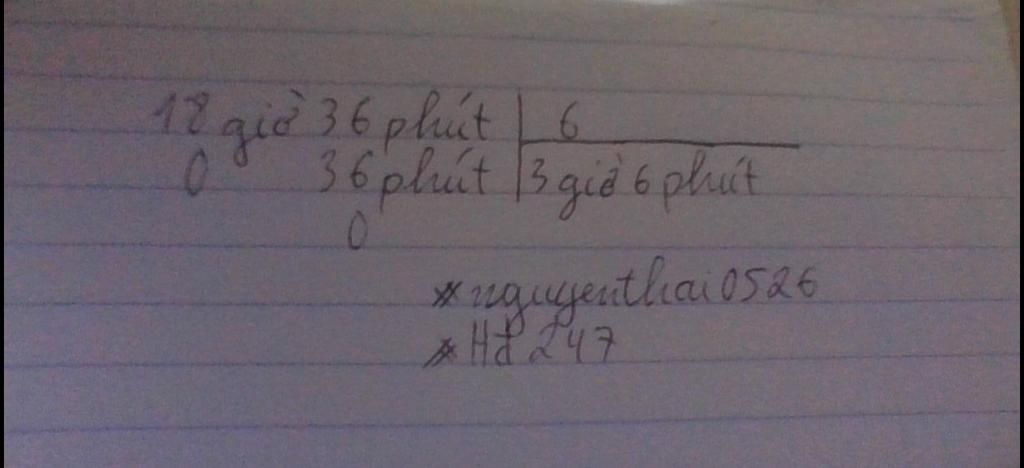 18 giờ 36 phút 6
0 36 phút 3 giờ 6 phút
0
*nguyenthai0526
*Hđ 247